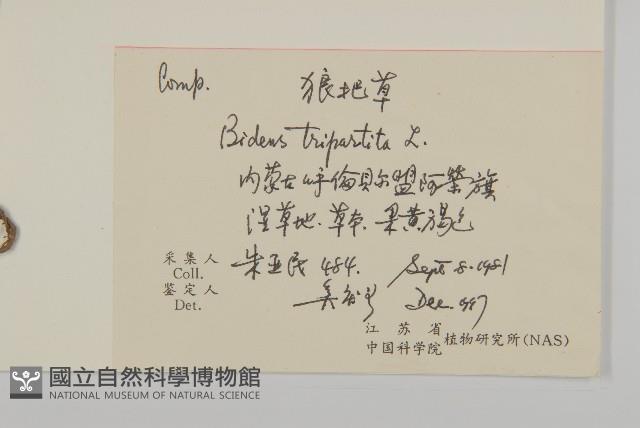 Comp. 狼把草
Bidens tripartita L.
内蒙古呼倫貝尔盟阿荣旗
湿草地.草本.果黄褐色
采集人 朱亚民 484. Sept 8.1981
Coll.
鉴定人 Dec. 1987
Det.
江苏省
中国科学院 植物研究所(NAS)
國立自然科學博物館
NATIONAL MUSEUM OF NATURAL SCIENCE